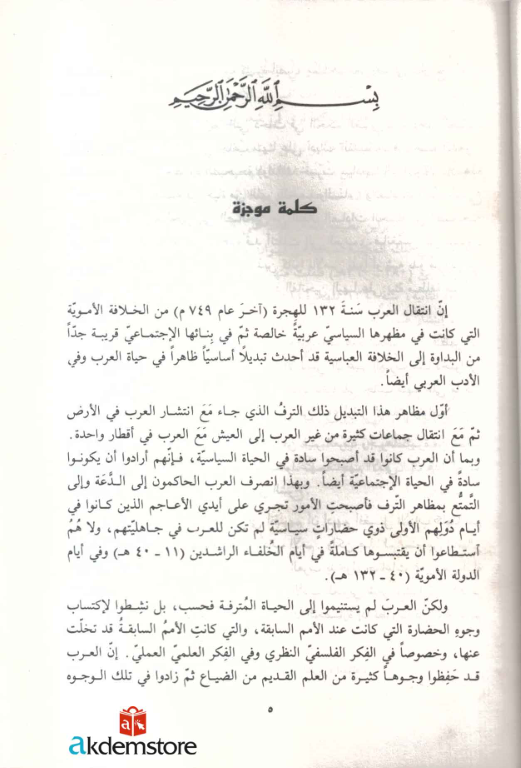 بِسْمِ ٱللَّهِ ٱلرَّحْمَٰنِ ٱلرَّحِيمِ
كلمة موجزة
إنّ انتقال العرب سَنةَ ١٣٢ للهجرة (آخرَ عام ٧٤٩ م) من الخلافة الأمويّة
التي كانت في مظهرها السياسيّ عربيّةً خالصة ثمّ في بِنائها الإجتماعيّ قريبة جدّاً
من البداوة إلى الخلافة العباسية قد أحدث تبديلًا أساسيّاً ظاهراً في حياة العرب وفي
الأدب العربي أيضاً.
أوّل مظاهر هذا التبديل ذلك الترفُ الذي جاء مَعَ انتشار العرب في الأرض
ثمّ مَعَ انتقال جماعات كثيرة من غير العرب إلى العيش مَعَ العرب في أقطار واحدة.
وبما أن العرب كانوا قد أصبحوا سادة في الحياة السياسيّة، فإنّهم أرادوا أن يكونوا
سادةً في الحياة الإجتماعيّة أيضاً. وبهذا انصرف العرب الحاكمون إلى الدَّعَة وإلى
التَّمتُّع بمظاهر التّرف فأصبحتِ الأمور تجري على أيدي الأعاجم الذين كانوا في
أيام دُوَلِهم الأولى ذوي حضاراتٍ سياسيّة لم تكن للعرب في جاهليّتهم، ولا هُمُ
أستطاعوا أن يقتبسوها كاملةً في أيام الخُلفاء الراشدين (١١ - ٤٠ هـ) وفي أيام
الدولة الأمويّة (٤٠ - ١٣٢ هـ).
ولكنّ العربَ لم يستنيموا إلى الحياة المُترفة فحسب، بل نشِطوا لإكتساب
وجوهِ الحضارة التي كانت عند الأمم السابقة، والتي كانتِ الأممُ السابقةُ قد تخلّت
عنها، وخصوصاً في الفِكر الفلسفيّ النظري وفي الفِكر العلميّ العمليّ. إنّ العرب
قد حَفِظوا وجوهاً كثيرة من العلم القديم من الضياع ثمّ زادوا في تلك الوجوه
٥
akdemstore